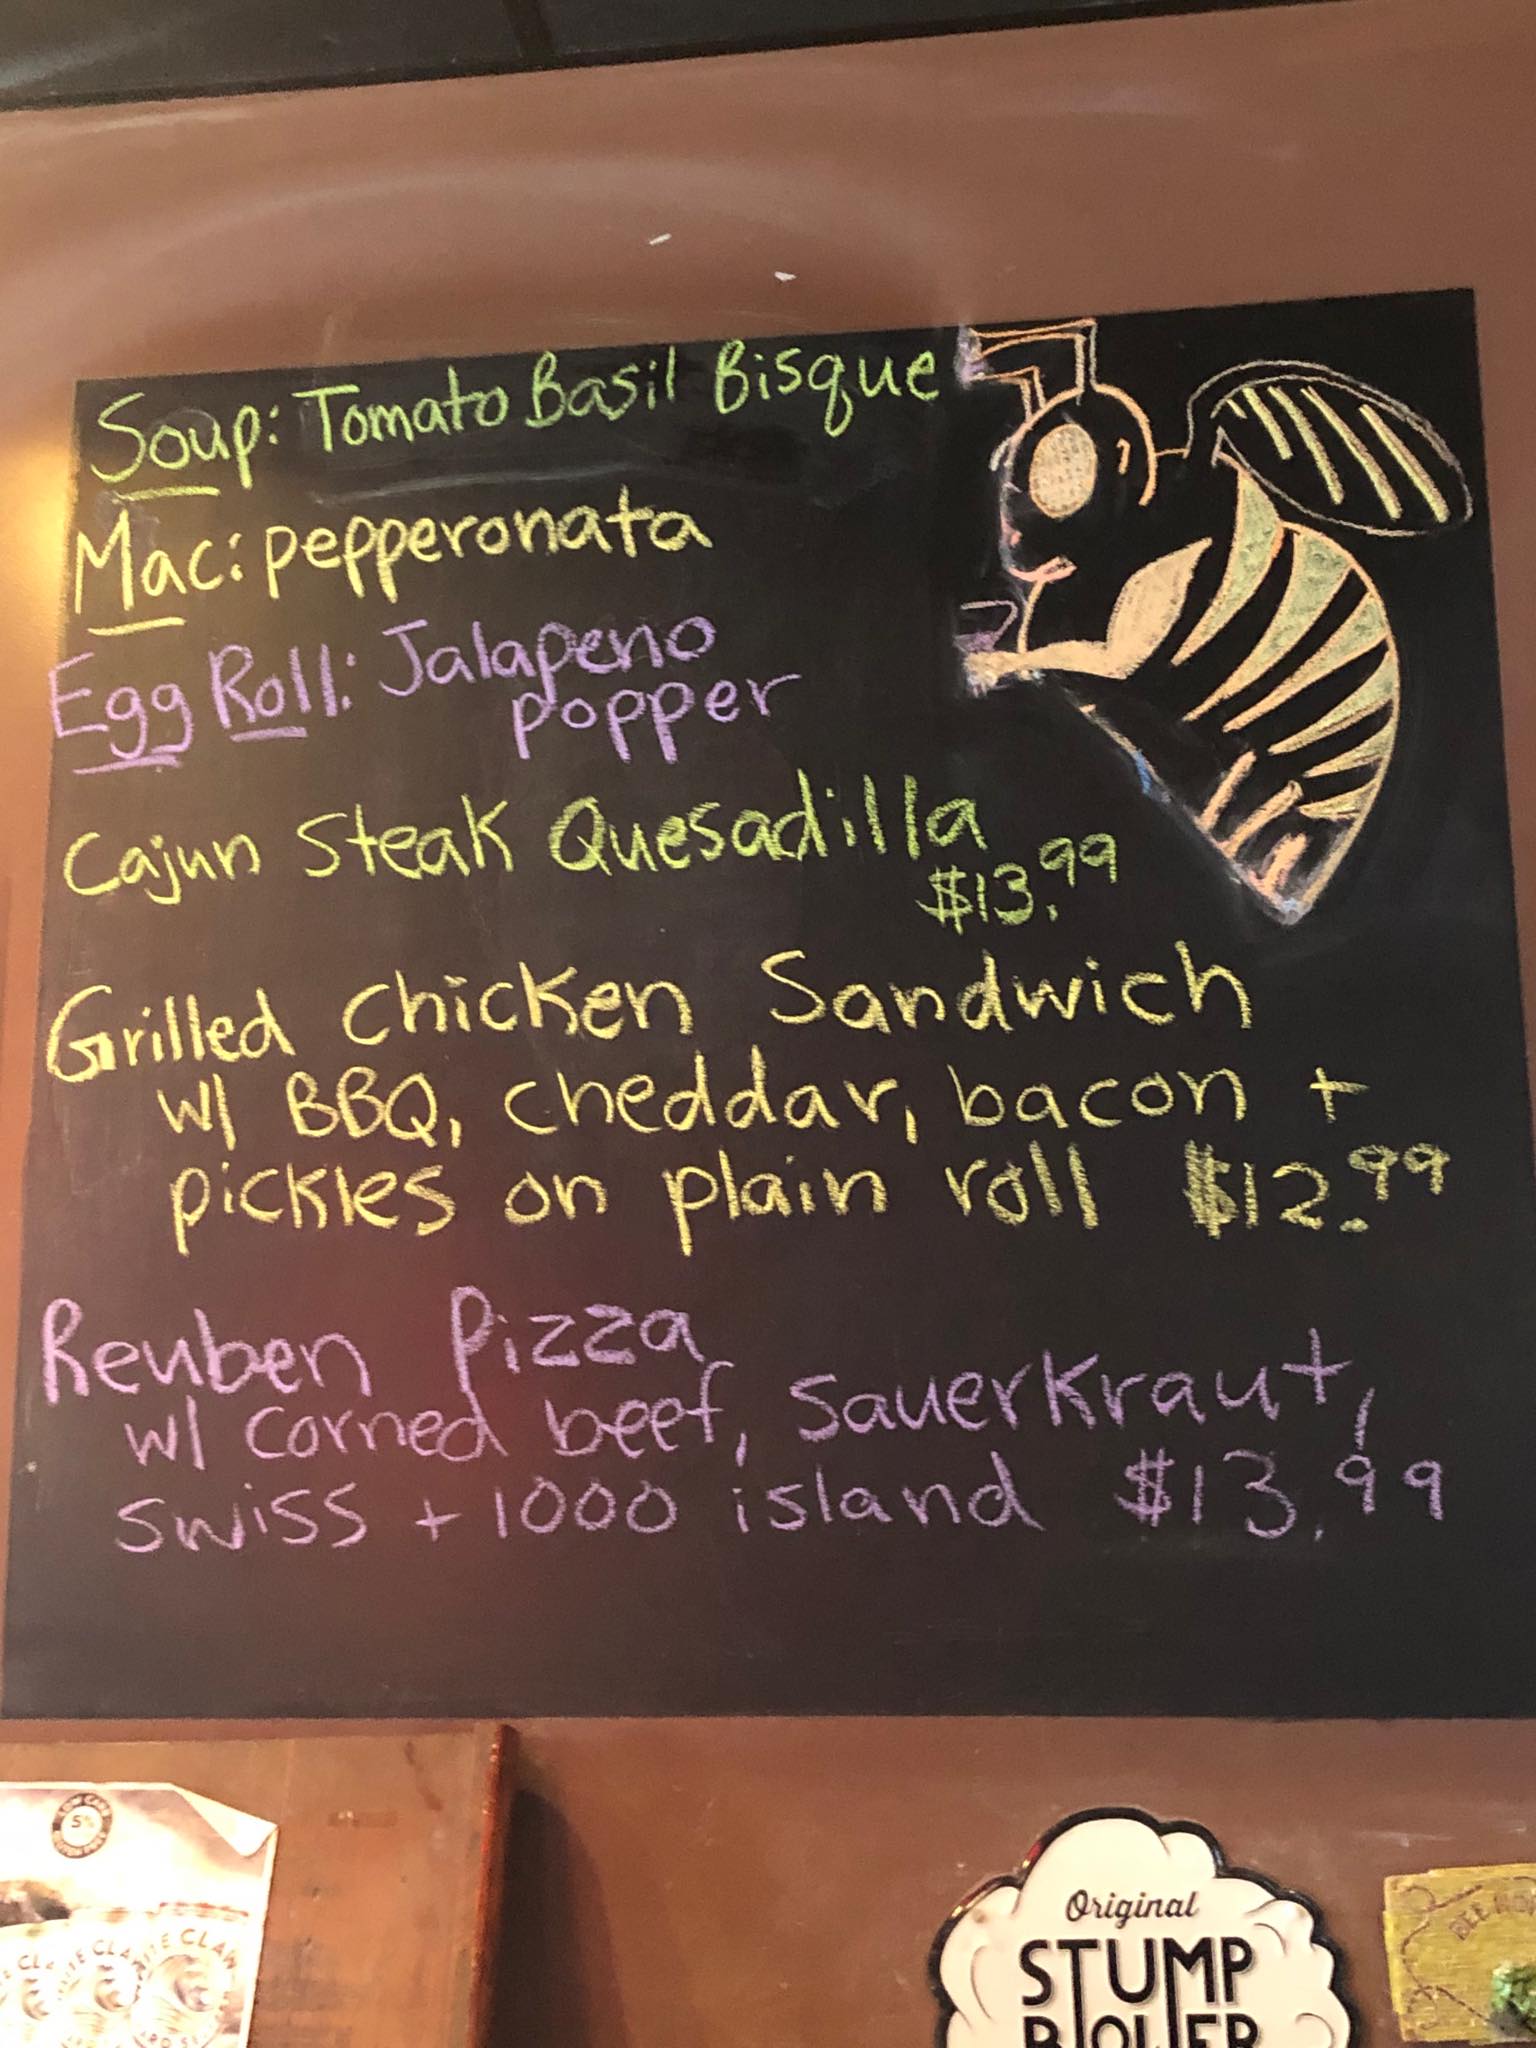 Soup: Tomato Basil Bisque
Mac: pepperonata
Egg Roll: Jalapeno
popper
Cajun Steak Quesadilla
$13.99
Grilled chicken Sandwich
w/ BBQ, cheddar, bacon +
pickles on plain roll $12.99
Reuben Pizza
w/ corned beef, sauerkraut,
swiss + 1000 island $13.99
5%
CLAW
Original
STUMP
BLOWER
BEE